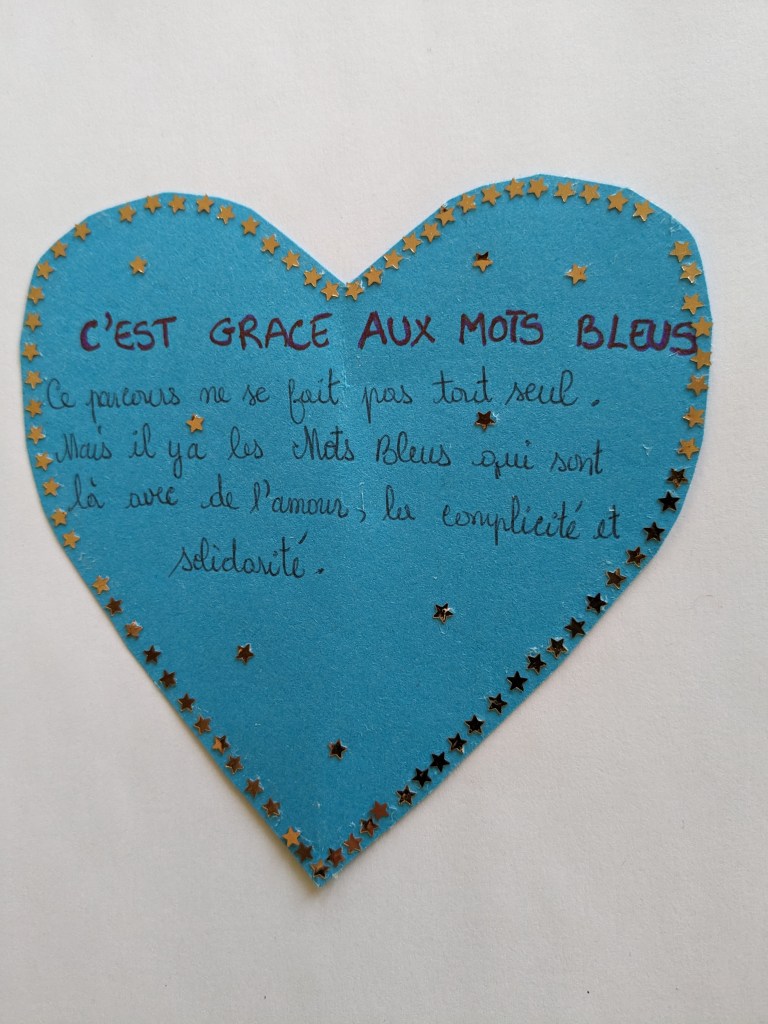 C'EST GRACE AUX MOTS BLEUS
Ce parcours ne se fait pas tout seul.
Mais il y a les Mots Bleus qui sont
là avec de l'amour, la complicité et
solidarité.